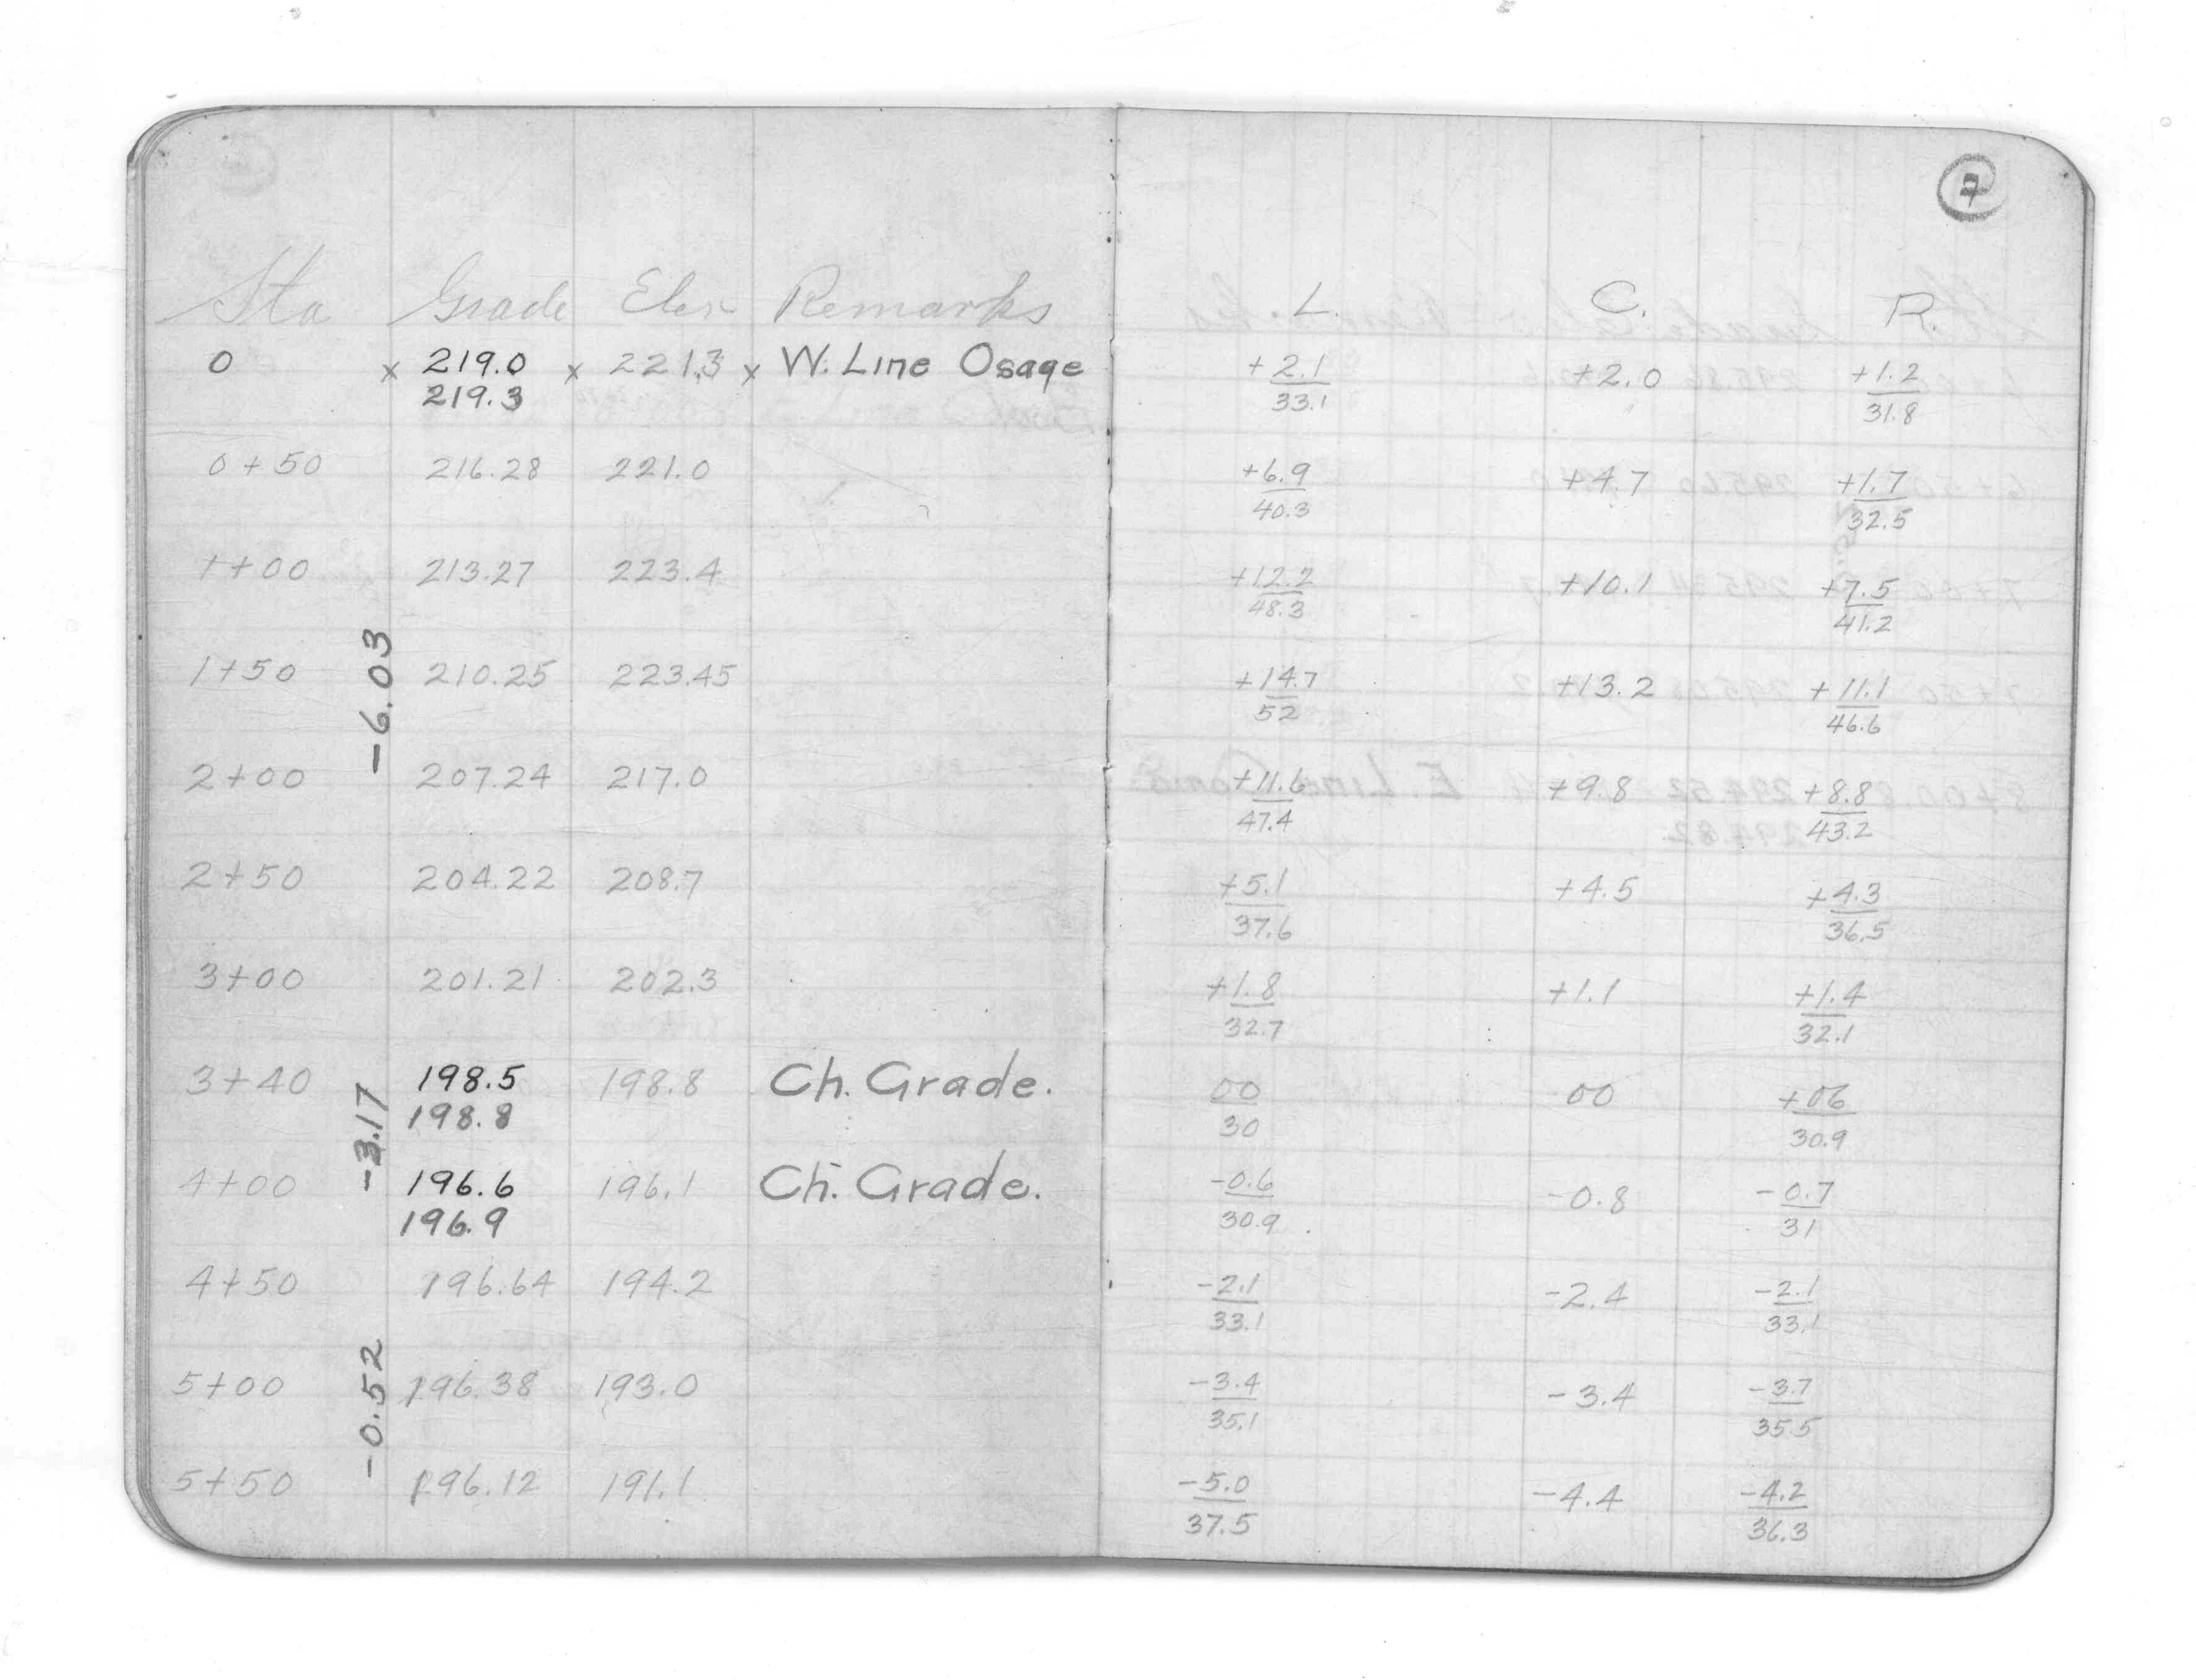 7
Sta Grade Elev Remarks L. C. R.
0 x 219.0 x 221.3 x W. Line Osage +2.1 +2.0 +1.2
219.3 33.1 31.8
0+50 216.28 221.0 +6.9 +4.7 +1.7
40.3 32.5
1+00 213.27 223.4 +12.2 +10.1 +7.5
48.3 41.2
-6.03
1+50 210.25 223.45 +14.7 +13.2 +11.1
52 46.6
2+00 207.24 217.0 +11.6 +9.8 +8.8
47.4 43.2
2+50 204.22 208.7 +5.1 +4.5 +4.3
37.6 36.5
3+00 201.21 202.3 +1.8 +1.1 +1.4
32.7 32.1
3+40 198.5 198.8 Ch. Grade. 00 00 +06
198.8 30 30.9
-3.17
4+00 196.6 196.1 Ch. Grade. -0.6 -0.8 -0.7
196.9 30.9 31
4+50 196.64 194.2 -2.1 -2.4 -2.1
33.1 33.1
-0.52
5+00 196.38 193.0 -3.4 -3.4 -3.7
35.1 35.5
5+50 196.12 191.1 -5.0 -4.4 -4.2
37.5 36.3